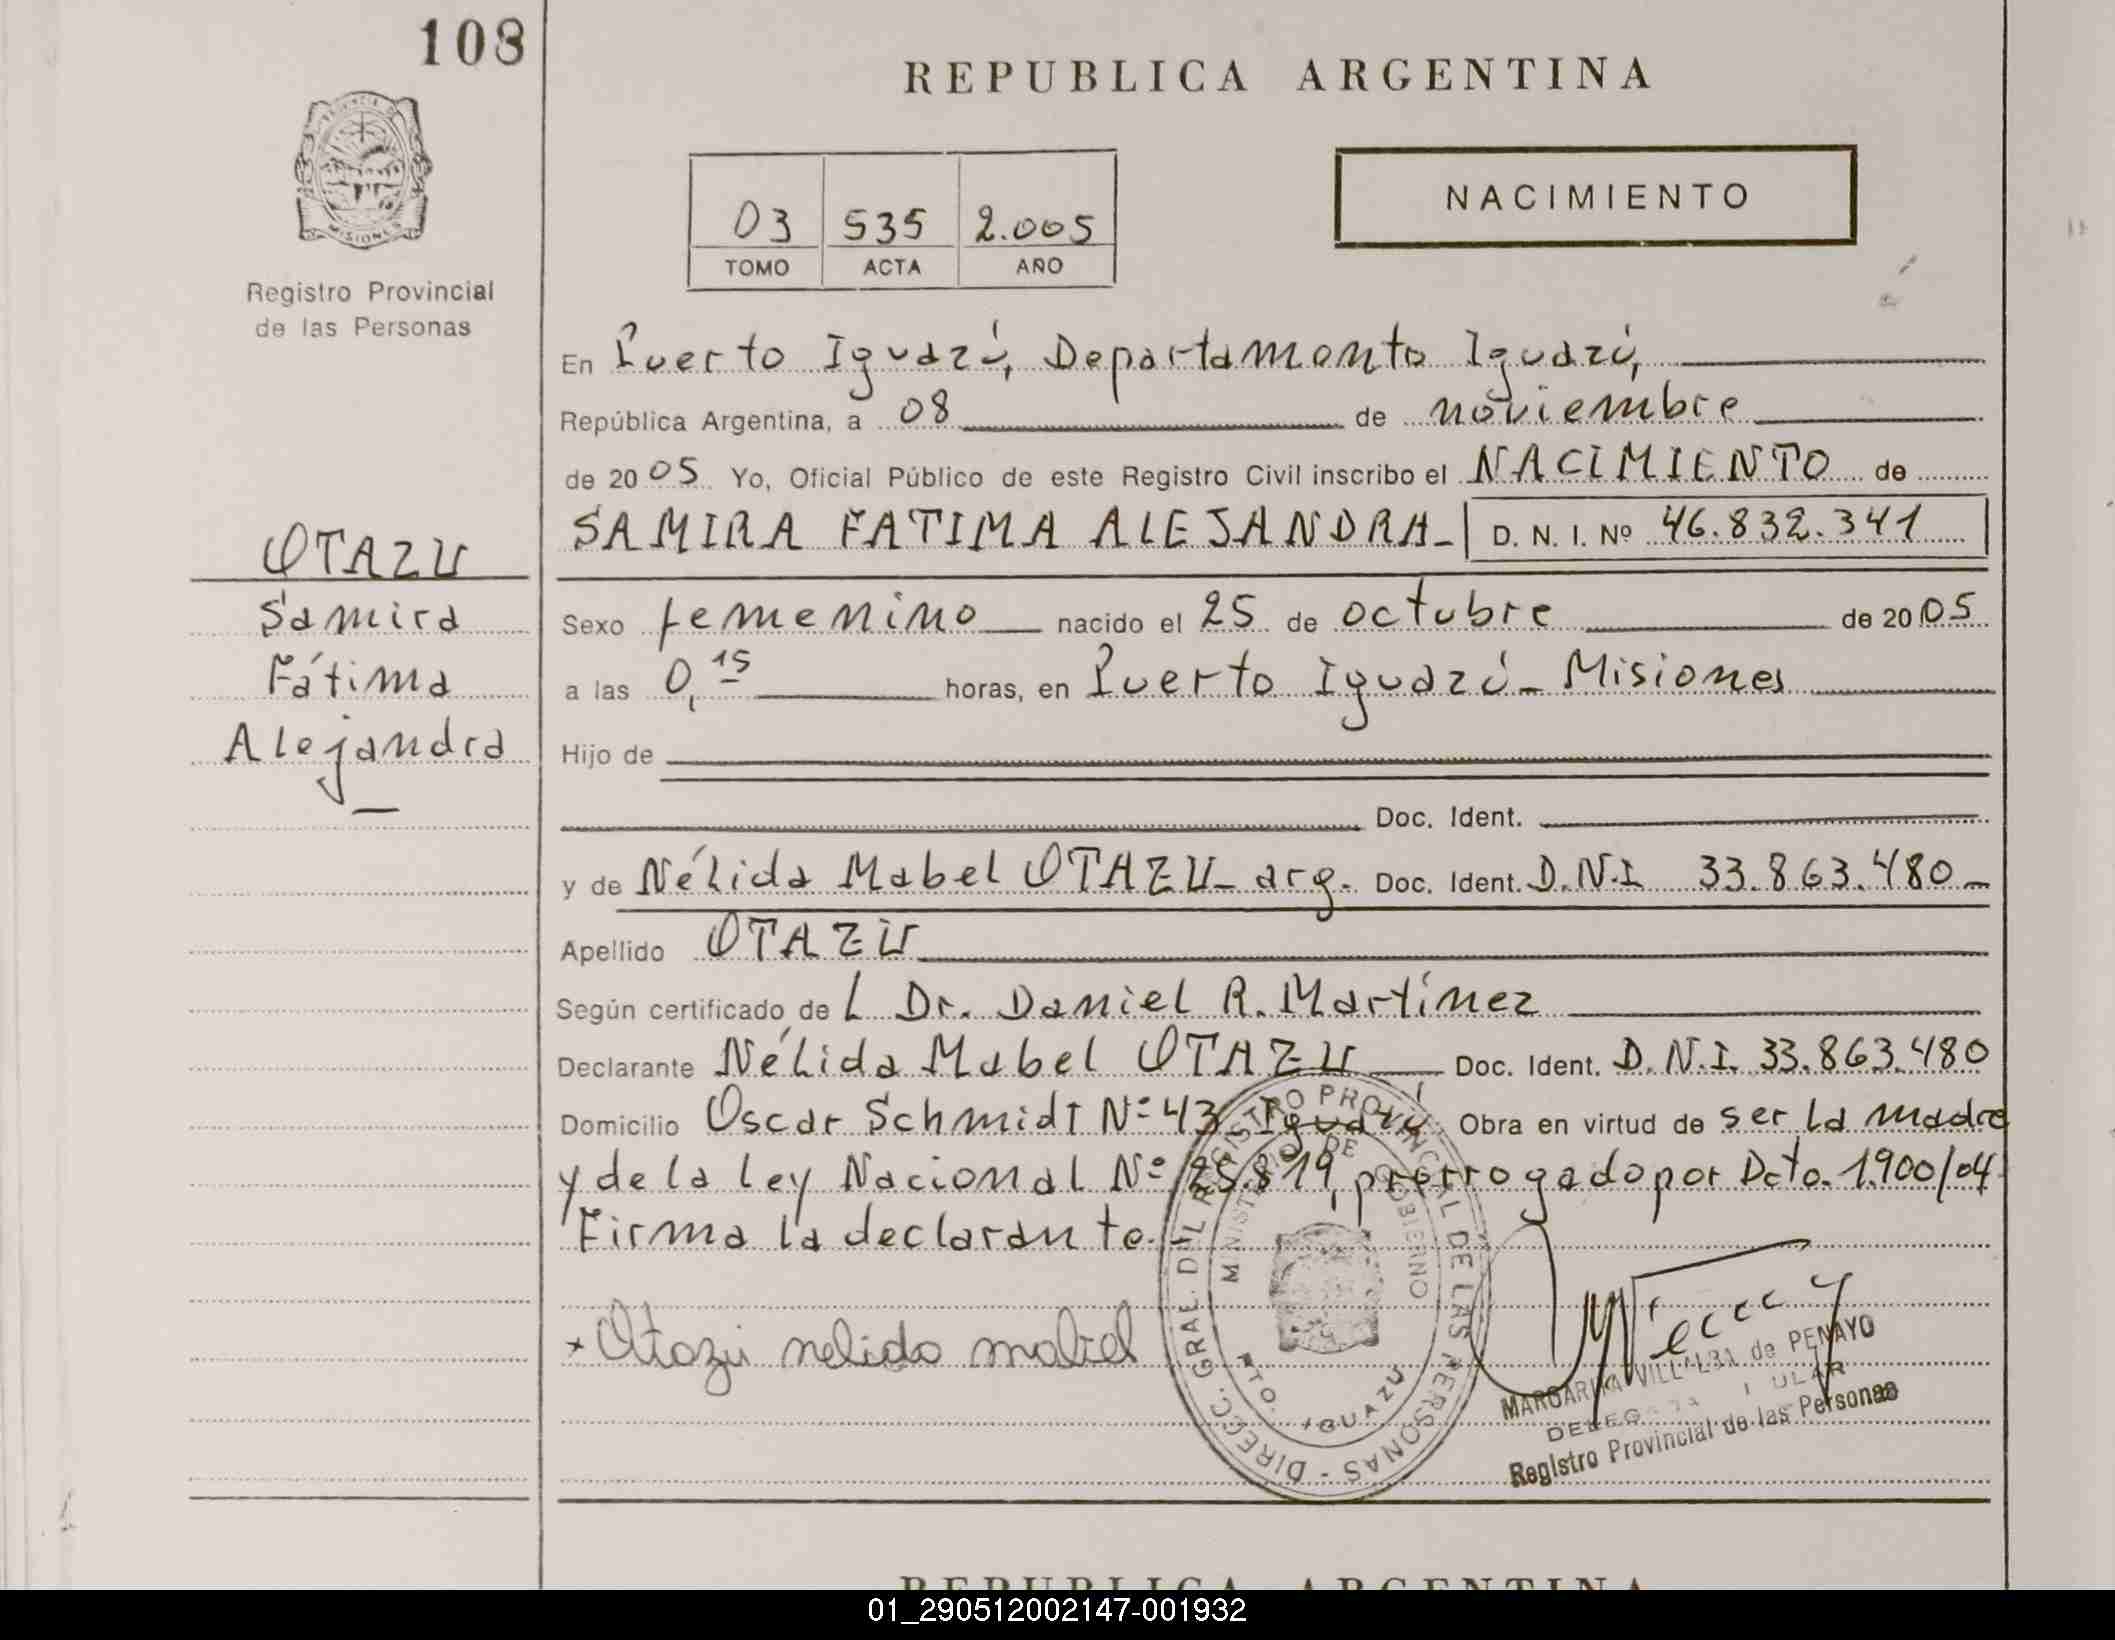 108
REPUBLICA ARGENTINA
NACIMIENTO
03 535 2.005
TOMO ACTA AÑO
PROVINCIA DE
MISIONES
Registro Provincial
de las Personas
En Puerto Iguazú, Departamento Iguazú,
República Argentina, a 08 de noviembre
de 2005 Yo, Oficial Público de este Registro Civil inscribo el NACIMIENTO de
SAMIRA FATIMA ALEJANDRA - D. N. I. Nº 46.832.341
OTAZU
Samira
Fátima
Alejandra
Sexo femenino nacido el 25 de octubre de 2005
a las 0,15 horas, en Puerto Iguazú - Misiones
Hijo de
Doc. Ident.
y de Nélida Mabel OTAZU - arg. Doc. Ident. D.N.I 33.863.480 -
Apellido OTAZU
Según certificado de L Dr. Daniel R. Martínez
Declarante Nélida Mabel OTAZU Doc. Ident. D.N.I. 33.863.480
Domicilio Oscar Schmidt Nº 43 Iguazú Obra en virtud de ser la madre
y de la Ley Nacional Nº 25.819, prorrogado por Dcto. 1.900/04
Firma la declarante.
* Otazu nelida mabel
DIRECC. GRAL. DEL REGISTRO PROVINCIAL DE LAS PERSONAS -
MINISTERIO DE GOBIERNO
DTO. IGUAZU
MARGARITA VILLALBA de PENAYO
DELEGADA TITULAR
Registro Provincial de las Personas
REPUBLICA ARGENTINA
01_290512002147-001932